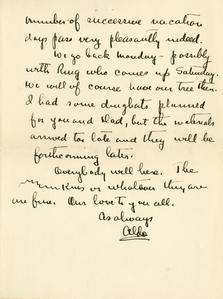 number of successive vacation
days pass very pleasantly indeed.
We go back Monday - possibly
with Rug who comes up Saturday.
We will of course have our tree then.
I had some dingbats planned
for you and Dad, but the materials
arrived too late and they will be
forthcoming later.
Everybody well here. The
or whatever they are
are fine. Our love to you all.
As always
Aldo